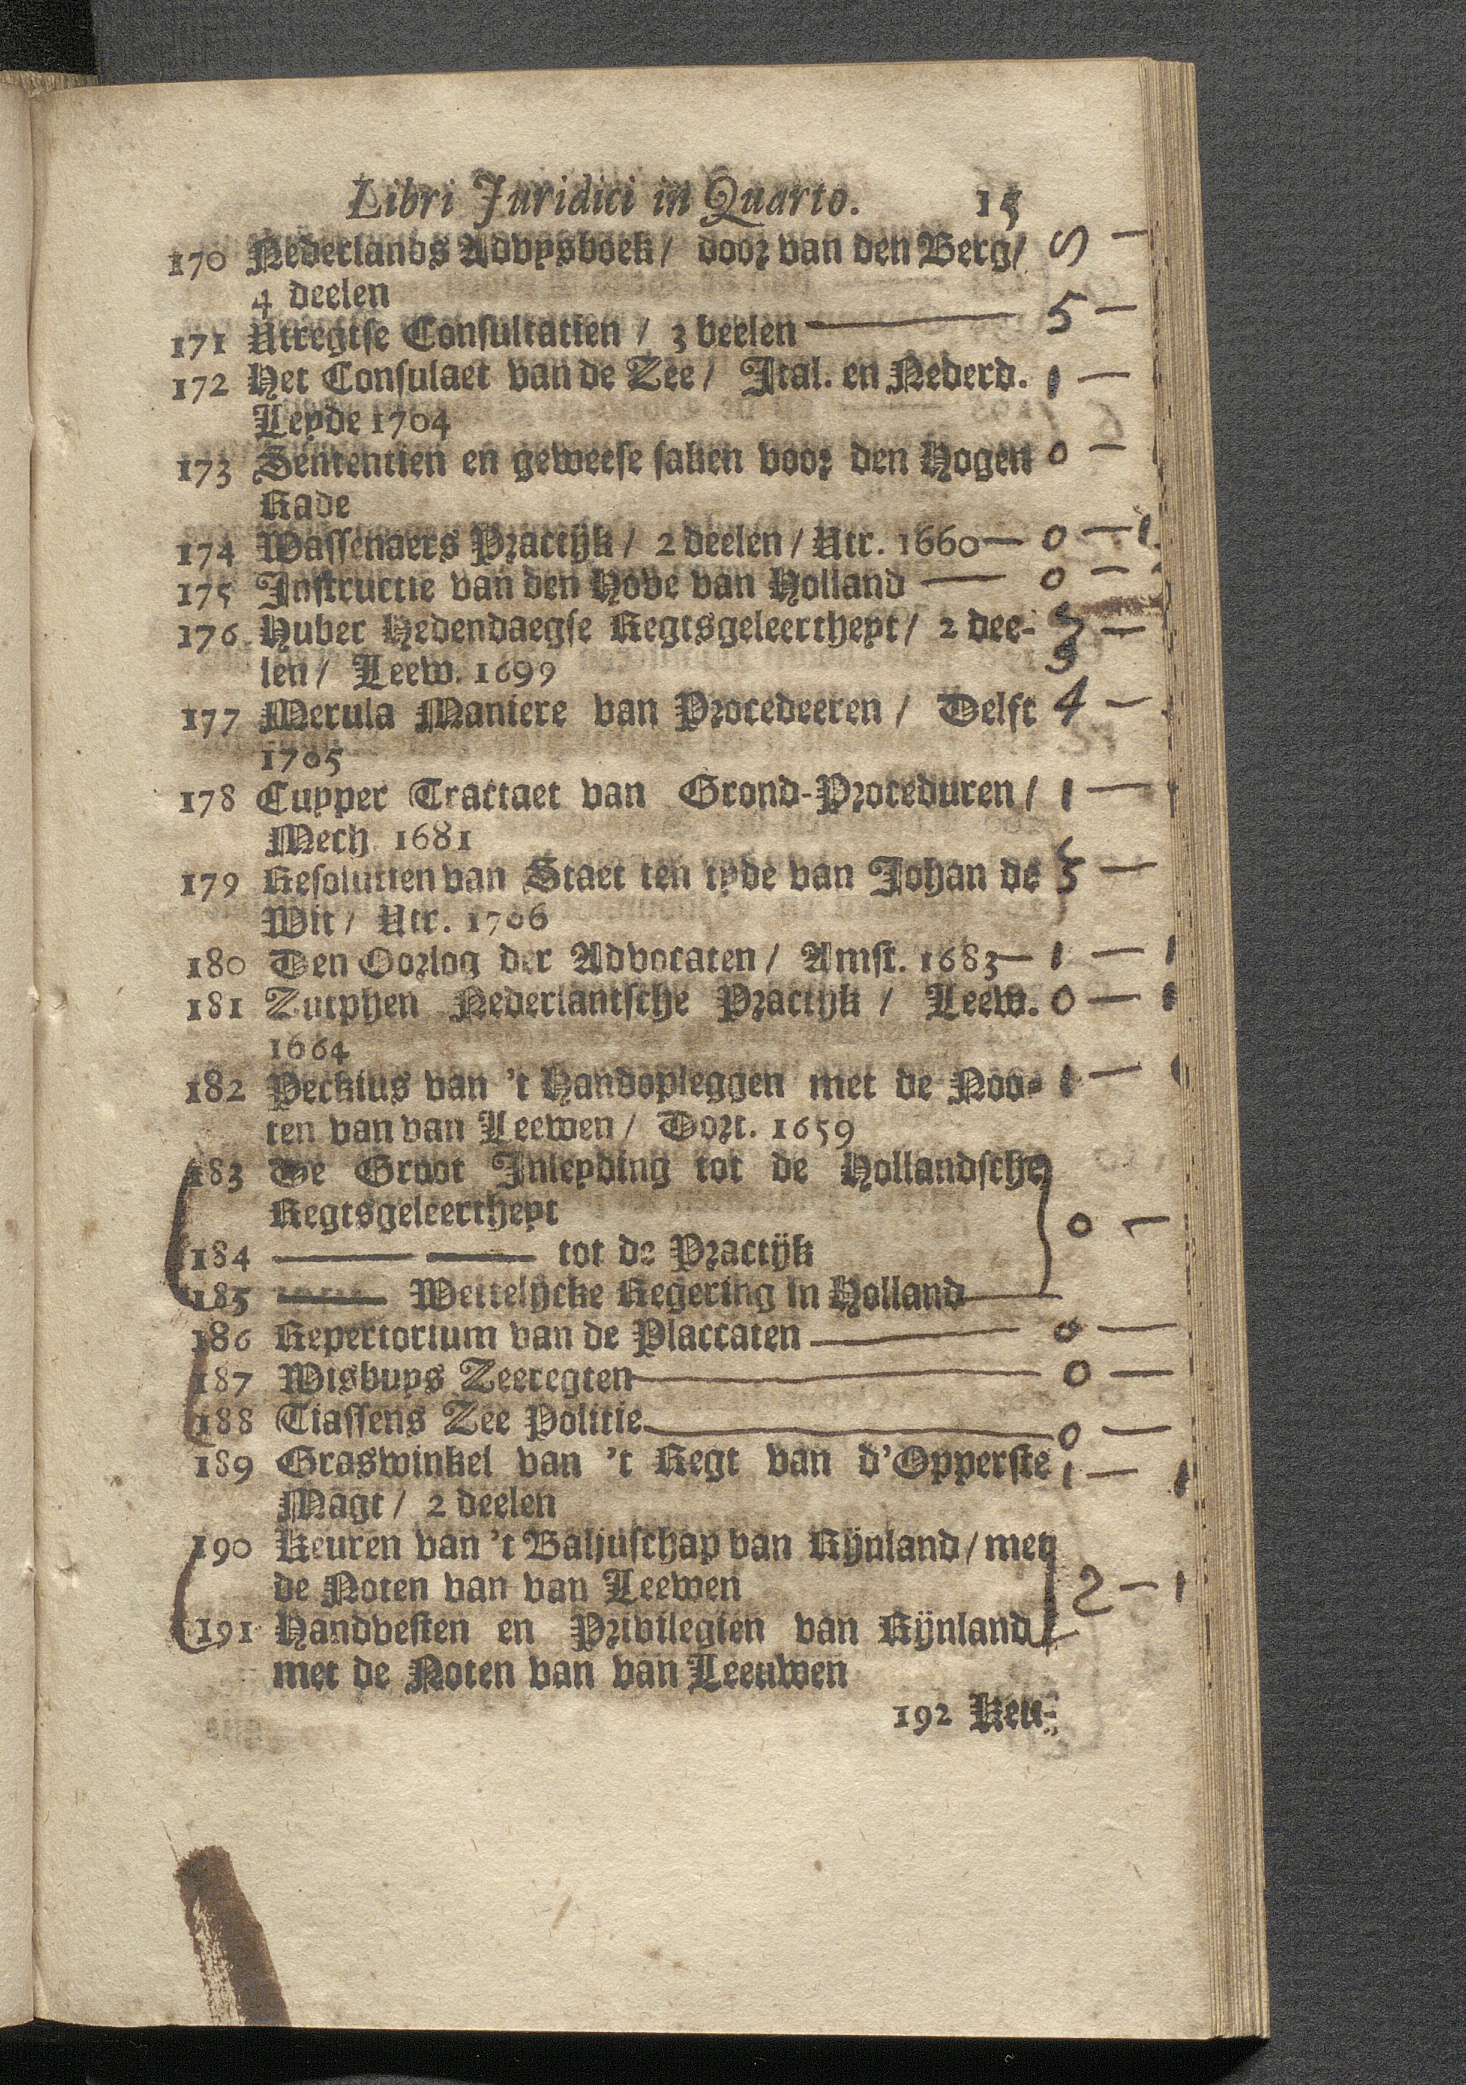 Libri Juridici in Quarto. 15
170 Nederlands Advysboek / door van den Berg / 5 —
4 deelen
171 Utregtse Consultatien / 3 deelen — 5 —
172 Het Consulaet van de Zee / Ital. en Nederd. 1 —
Leyde 1704
173 Sententien en geweese saken voor den Hogen 0 —
Rade
174 Wassenaers Practijk / 2 deelen / Utr. 1660 — 0 — 1
175 Instructie van den Hove van Holland — 0 —
176 Huber Hedendaegse Regtsgeleertheyt / 2 dee- —
len / Leew. 1699
177 Merula Maniere van Procedeeren / Delft 4 —
1705
178 Cupper Tractaet van Grond-Proceduren / 1 —
Mech 1681
179 Resolutien van Staet ten tyde van Johan de 3 —
Wit / Utr. 1706
180 Den Oorlog der Advocaten / Amst. 1683 — 1 — 1
181 Zutphen Nederlantsche Practijk / Leew. 0 —
1664
182 Peckius van 't Handopleggen met de Noo- 1 —
ten van van Leewen / Dort. 1659
183 De Groot Inleyding tot de Hollandsche
Regtsgeleertheyt 0 —
184 — — tot de Practijk
185 — Wettelijcke Regering in Holland —
186 Repertorium van de Placcaten — 0 —
187 Wisbuys Zeeregten — 0 —
188 Tiassens Zee Politie — 0 —
189 Graswinkel van 't Regt van d'Opperste 1 — 1
Magt / 2 deelen
190 Keuren van 't Baljuschap van Rijnland / met
de Noten van van Leewen 2 — 1
191 Handvesten en Privilegien van Rijnland
met de Noten van van Leeuwen
192 Keu-